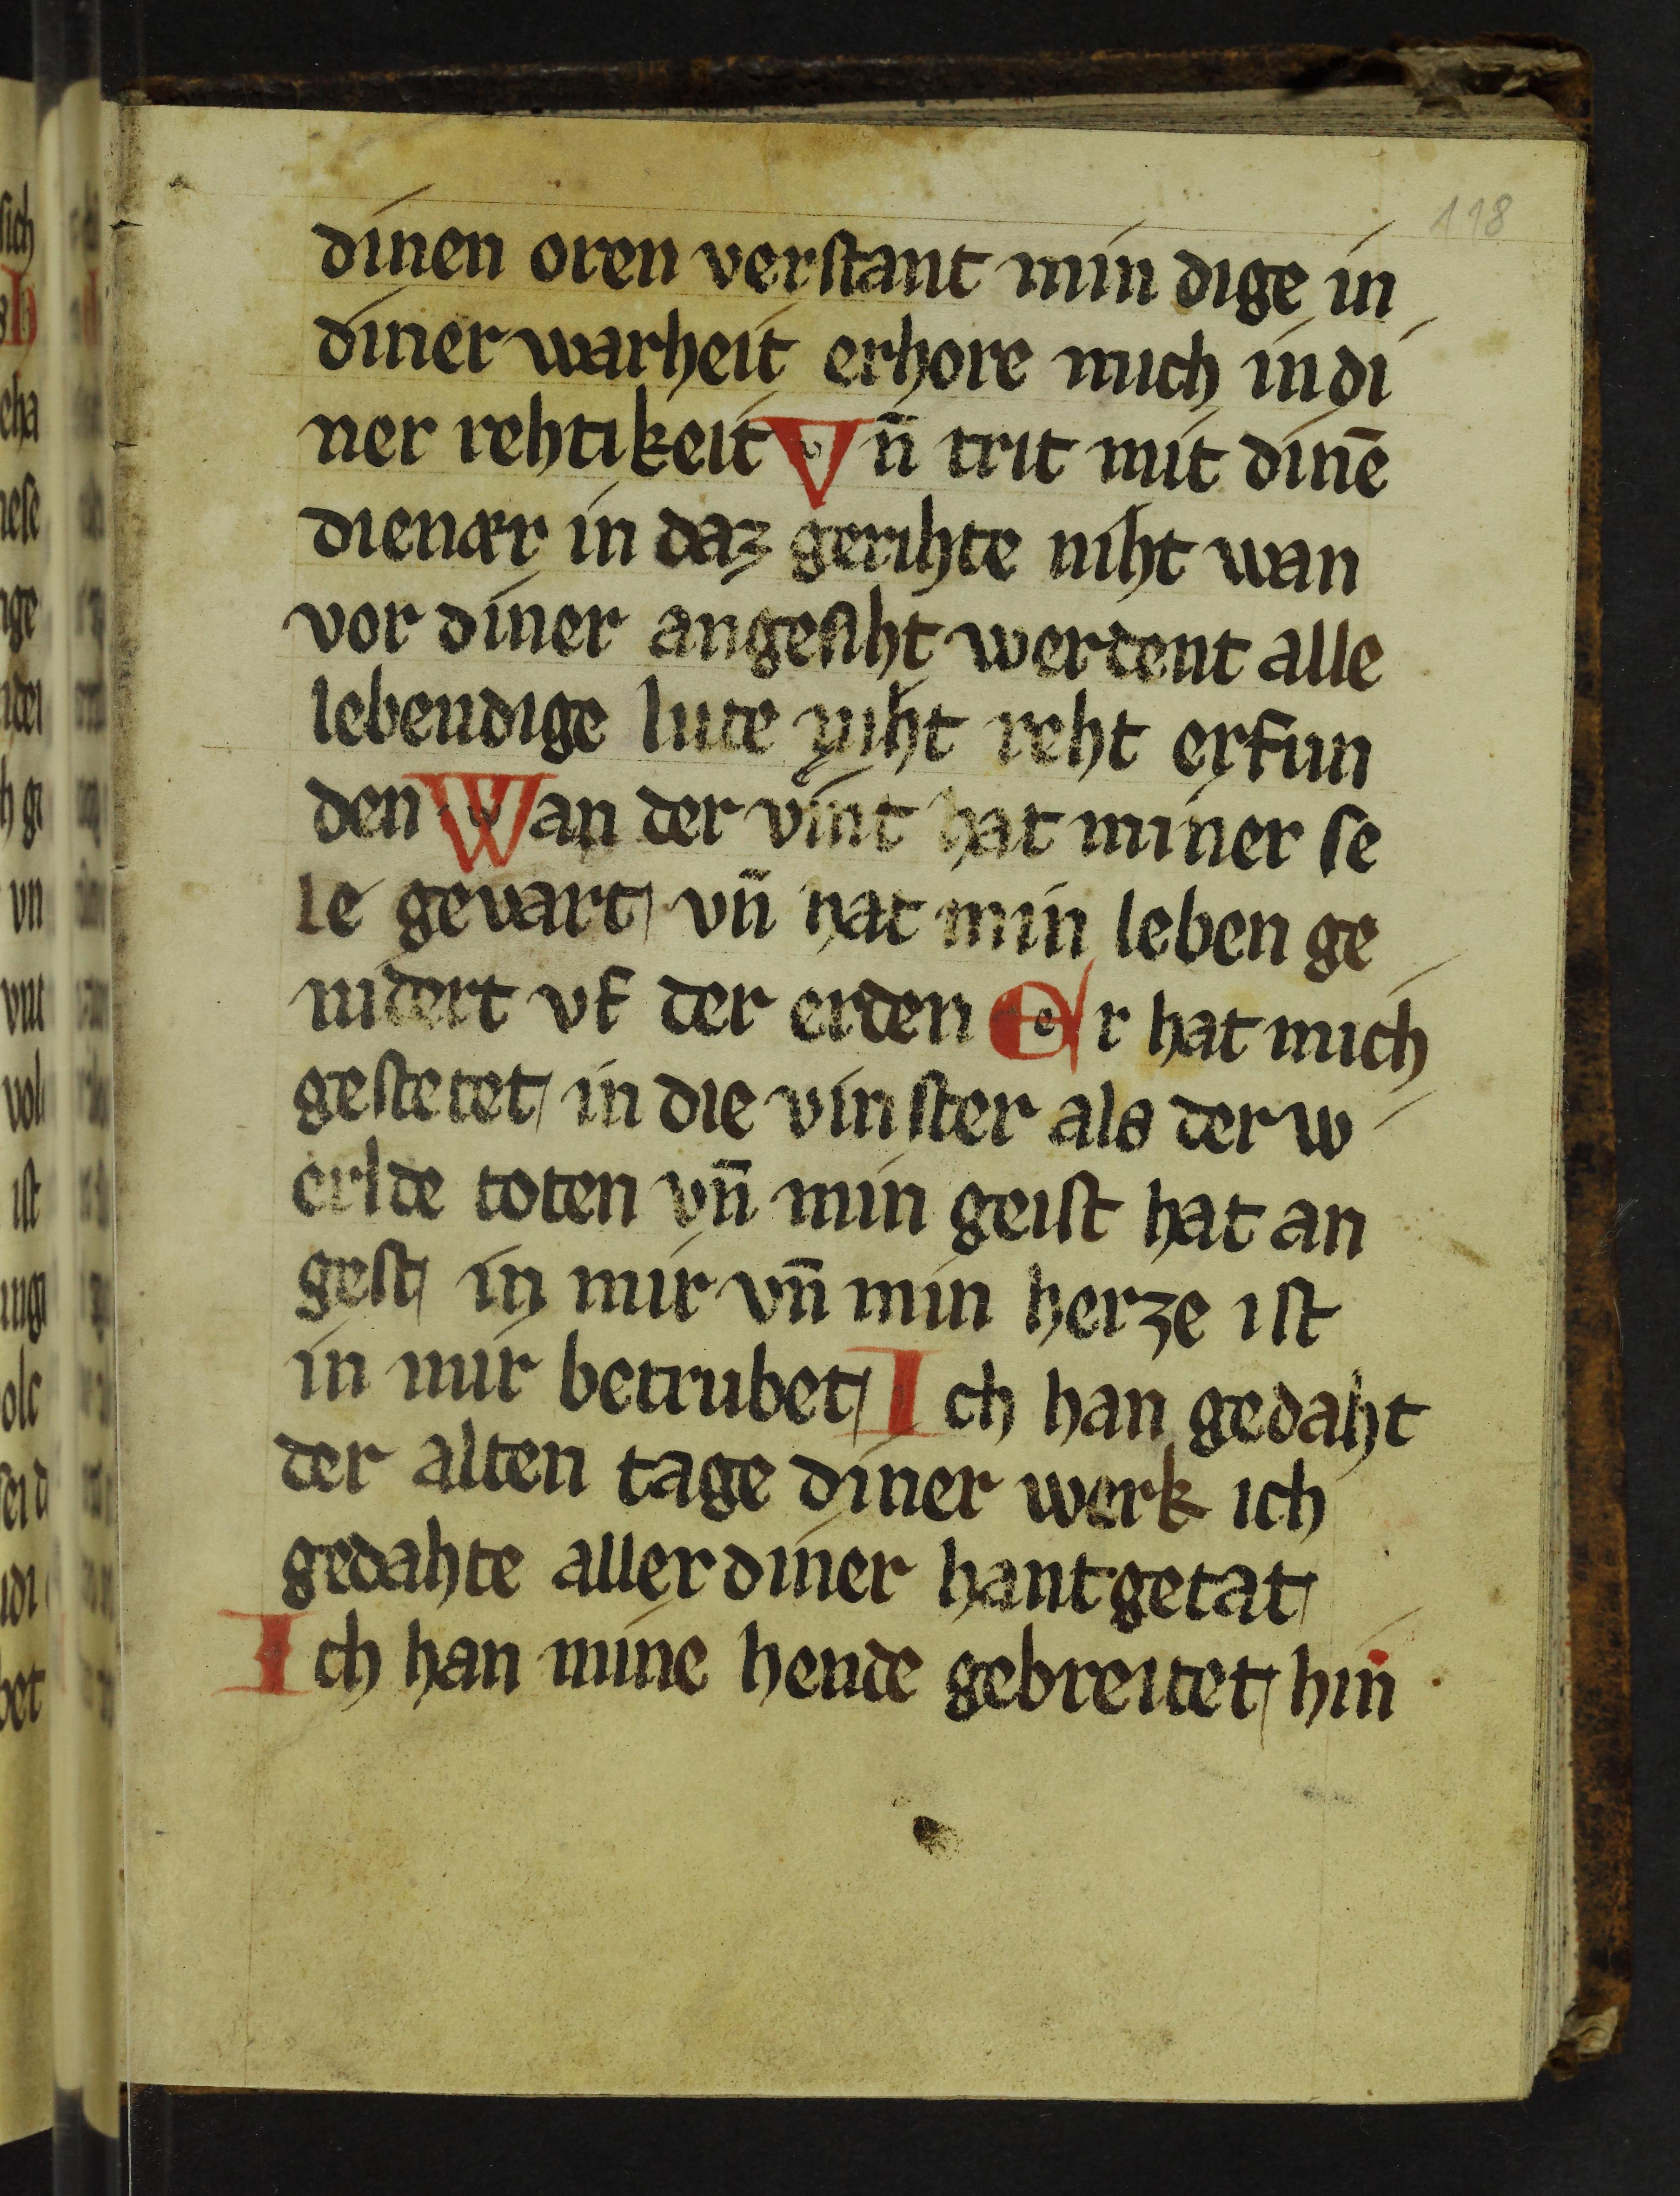 118
dinen oren verstant min dige in
diner warheit erhore mich in di
ner rehtikeit Vn̄ trit mit dinē
dienær in daz gerihte niht wan
vor diner angesiht werdent alle
lebendige lute niht reht erfun
den Wan der vint hat miner se
le gevart vn̄ hat min leben ge
nidert vf der erden Er hat mich
gestetet in die vinster als der w
erlde toten vn̄ min geist hat an
gest in mir vn̄ min herze ist
in mir betrubet Ich han gedaht
der alten tage diner werk ich
gedahte aller diner hantgetat
Ich han mine hende gebreitet hin